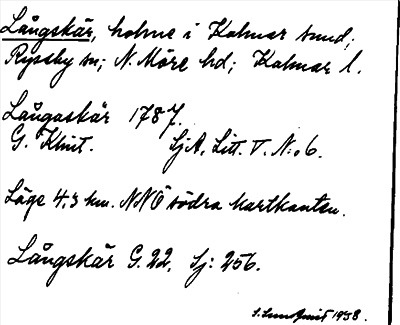 Långskär, holme i Kalmar sund,
Ryssby sn; N. Möre hd; Kalmar l.
Långaskär 1787.
G. Klint. SjA. Litt. V. N:o 6.
Läge 4,3 km. NNÖ södra kartkanten.
Långskär G. 22, Sj: 256.
S. Lundquist 1938.